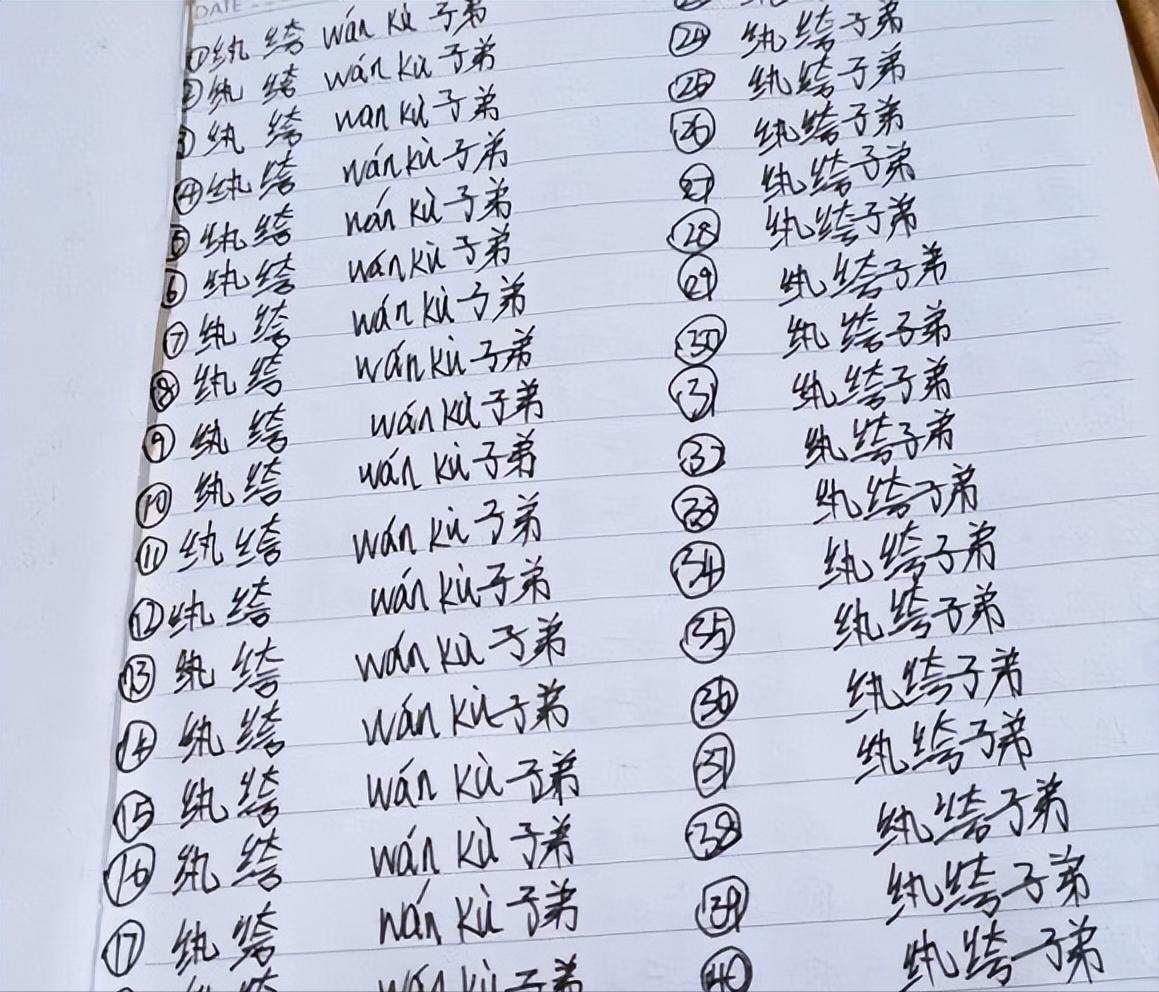 DATE
①纨绔 wán kù 子弟
②纨绔 wán kù 子弟
③纨绔 wán kù 子弟
④纨绔 wán kù 子弟
⑤纨绔 wán kù 子弟
⑥纨绔 wán kù 子弟
⑦纨绔 wán kù 子弟
⑧纨绔 wán kù 子弟
⑨纨绔 wán kù 子弟
⑩纨绔 wán kù 子弟
⑪纨绔 wán kù 子弟
⑫纨绔 wán kù 子弟
⑬纨绔 wán kù 子弟
⑭纨绔 wán kù 子弟
⑮纨绔 wán kù 子弟
⑯纨绔 wán kù 子弟
⑰纨绔 wán kù 子弟
纨绔 wán kù 子弟
㉔纨绔子弟
㉕纨绔子弟
㉖纨绔子弟
㉗纨绔子弟
㉘纨绔子弟
㉙纨绔子弟
㉚纨绔子弟
㉛纨绔子弟
㉜纨绔子弟
㉝纨绔子弟
㉞纨绔子弟
㉟纨绔子弟
㊱纨绔子弟
㊲纨绔子弟
㊳纨绔子弟
㊴纨绔子弟
㊵纨绔子弟